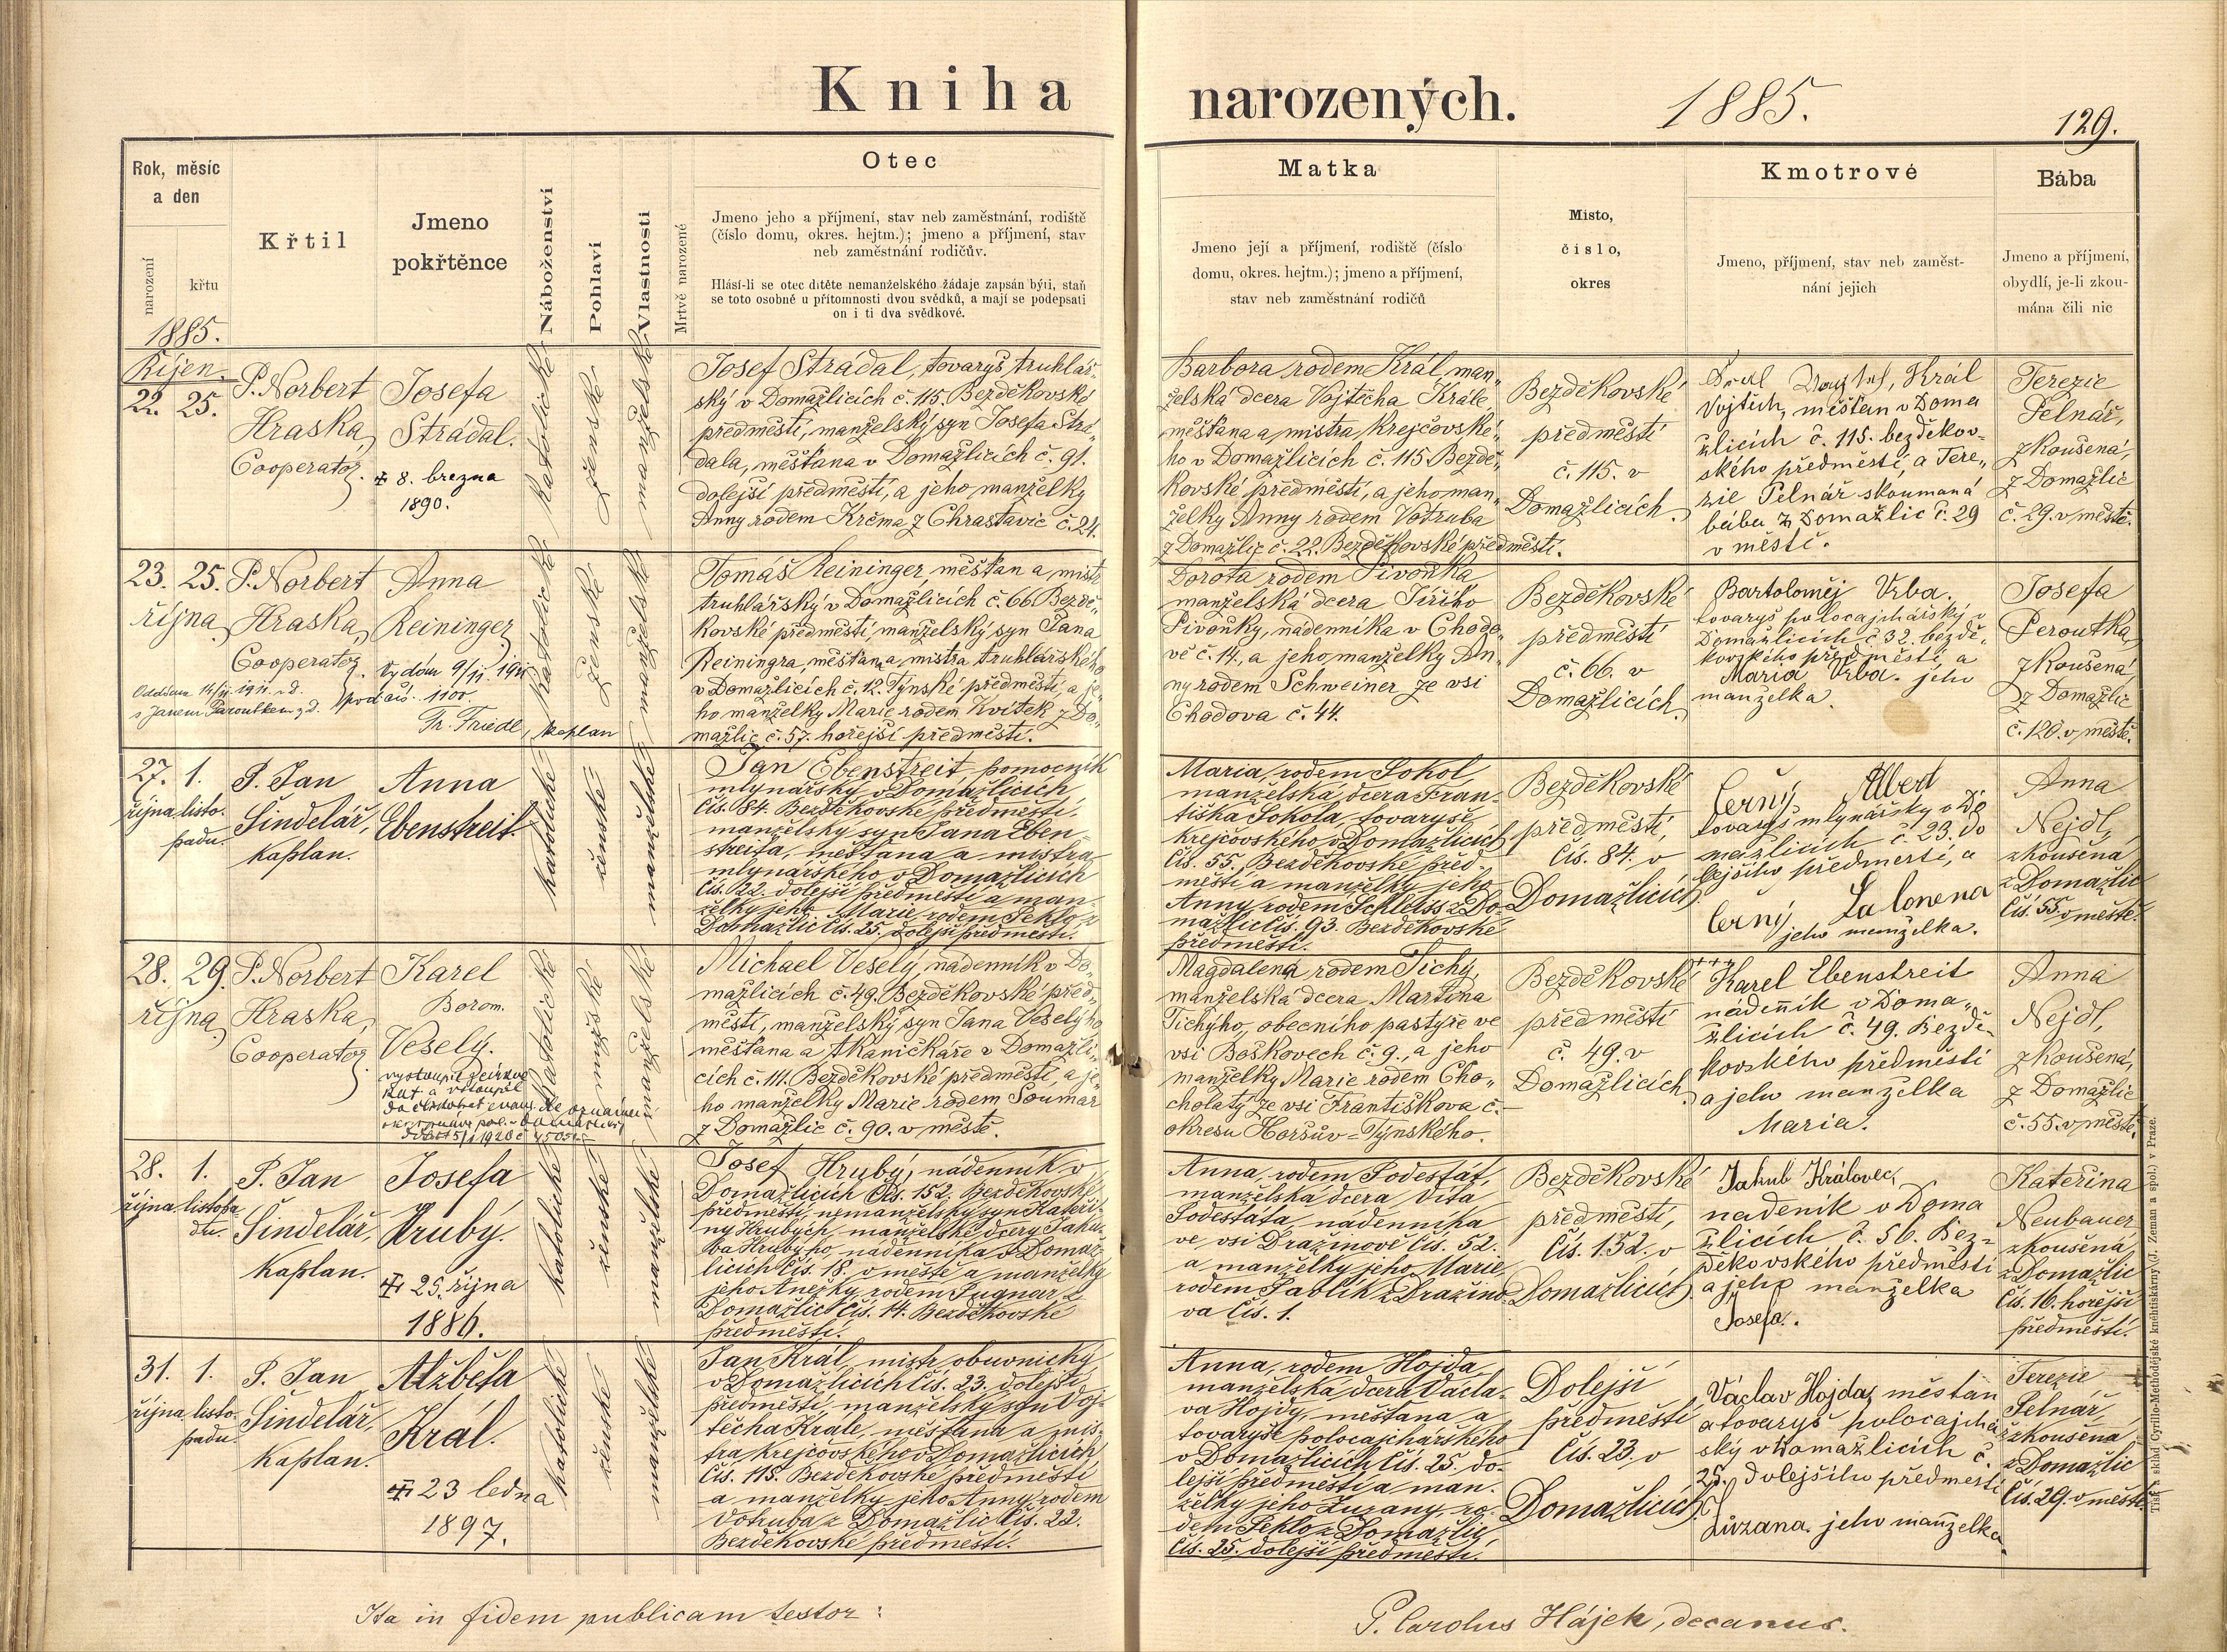 Kniha narozených. 1885.
129.
Rok, měsíc
a den
narození
křtu
Křtil
Jmeno
pokřtěnce
Náboženství
Pohlaví
Vlastnosti
Mrtvě narozené
Otec
Jmeno jeho a příjmení, stav neb zaměstnání, rodiště
(číslo domu, okres. hejtm.); jmeno a příjmení, stav
neb zaměstnání rodičův.
Hlásí-li se otec dítěte nemanželského žádaje zapsán býti, staň
se toto osobně u přítomnosti dvou svědků, a mají se podepsati
on i ti dva svědkové.
Matka
Jmeno její a příjmení, rodiště (číslo
domu, okres. hejtm.); jmeno a příjmení,
stav neb zaměstnání rodičů
Misto,
číslo,
okres
Kmotrové
Jmeno, příjmení, stav neb zaměst-
nání jejich
Bába
Jmeno a příjmení,
obydlí, je-li zkou-
mána čili nic
1885.
Říjen.
22. 25.
P. Norbert
Hraska,
Cooperator.
Josefa
Strádal.
8. března
1890.
katolické
ženské
manželské
Josef Strádal, tovaryš truhlář-
ský v Domažlicích č. 115. Bezděkovské
předměstí, manželský syn Josefa Strá-
dala, měšťana v Domažlicích č. 91.
dolejší předměstí, a jeho manželky
Anny rodem Krčma z Chrastavic č. 24.
Barbora rodem Král man-
želská dcera Vojtěcha Krále,
měšťana a mistra krejčovské-
ho v Domažlicích č. 115 Bezdě-
kovské předměstí, a jeho man-
želky Anny rodem Votruba
z Domažlic č. 22. Bezděkovské předměstí.
Bezděkovské
předměstí
č. 115. v
Domažlicích.
Král
Vojtěch, měšťan v Doma
žlicích č. 115. bezděkov-
ského předměstí, a Tere-
zie Pelnář skoumaná
bába z Domažlic č. 29
v městě.
Terezie
Pelnář,
zkoušená,
z Domažlic
č. 29. v městě.
23. 25.
října
P. Norbert
Hraska,
Cooperator.
Anna
Reininger
Vydán 9/11. 1911
pod čís. 1100.
Fr. Friedl, kaplan
Oddána 14/11. 1911. zd.
s Janem Paroubkem zd.
katolické
ženské
manželské
Tomáš Reininger, měšťan a mistr
truhlářský v Domažlicích č. 66 Bezdě-
kovské předměstí, manželský syn Jana
Reiningra, měšťana, mistra truhlářského
v Domažlicích č. 12. Týnské předměstí, a je-
ho manželky Marie rodem Kvítek z Do-
mažlic č. 57. hořejší předměstí.
Dorota rodem Pivoňka
manželská dcera Jiřího
Pivoňky, nádenníka v Chodo-
vě č. 14., a jeho manželky An-
ny rodem Schweiner ze vsi
Chodova č. 44.
Bezděkovské
předměstí
č. 66. v
Domažlicích.
Bartoloměj Vrba.
tovaryš polocajchářský v
Domažlicích č 32. bezdě-
kovského předměstí, a
Maria Vrba. jeho
manželka.
Josefa
Peroutka,
zkoušená,
z Domažlic
č. 120. v městě.
27. 1.
října listo-
padu.
P. Jan
Šindelář,
kaplan.
Anna
Ebenstreit.
katolické
ženské
manželské
Jan Ebenstreit, pomocník
mlynářský v Domažlicích,
čís. 84. Bezděkovské předměstí,
manželský syn Jana Eben-
streita, měšťana a mistra
mlynářského v Domažlicích
čís. 22. dolejší předměstí a man-
želky jeho Marie rodem Peklo z
Domažlic čís. 25. dolejší předměstí.
Maria, rodem Sokol,
manželská dcera Fran-
tiška Sokola, tovaryše
krejčovského v Domažlicích
čís. 55. Bezděkovské před-
městí a manželky jeho
Anny rodem Schleiss z Do-
mažlic čís. 93. Bezděkovské
předměstí.
Bezděkovské
předměstí,
čís. 84. v
Domažlicích.
Černý Albert
tovaryš mlynářský v Do
mažlicích č. 23. do
lejšího předměstí, a
Černý
jeho manželka.
Anna
Nejdl,
zkoušená
z Domažlic
čís. 55. v městě.
28. 29.
října
P. Norbert
Hraska,
Cooperator.
Karel
Borom.
Veselý.
vystoupil z církve
kat. a vstoupil
katolické
mužské
manželské
Michael Veselý, nádenník v Do-
mažlicích č. 49. Bezděkovské před-
městí, manželský syn Jana Veselýho
měšťana a tkaničkáře v Domažli-
cích č. 111. Bezděkovské předměstí, a je-
ho manželky Marie rodem Soumar
z Domažlic č. 90. v městě.
Magdalena rodem Tichý,
manželská dcera Martina
Tichýho, obecního pastýře ve
vsi Boškovech č. 9., a jeho
manželky Marie rodem Cho-
cholatý ze vsi Františkova č.-
okresu Horšův-Týnského.
Bezděkovské
předměstí
č. 49. v
Domažlicích.
+++
Karel Ebenstreit
nádenník v Doma-
žlicích č. 49. Bezdě-
kovského předměstí
a jeho manželka
Maria.
Anna
Nejdl,
zkoušená,
z Domažlic
č. 55. v městě.
28. 1.
října listopa
du.
P. Jan
Šindelář,
kaplan.
Josefa
Hrubý.
25. října
1886.
katolické
ženské
manželské
Josef Hrubý, nádenník v
Domažlicích čís. 152. Bezděkovské
předměstí, nemanželský syn Kateři-
ny Hrubých, manželské dcery Jaku-
ba Hrubýho, nádenníka v Domaž-
licích čís. 18. v městě a manželky
jeho Anežky rodem Pugnar z
Domažlic čís. 14. Bezděkovské
předměstí.
Anna, rodem Podestát,
manželská dcera Víta
Podestáta, nádenníka
ve vsi Dražinově čís. 52.
a manželky jeho Marie,
rodem Pavlík z Dražino-
va čís. 1.
Bezděkovské
předměstí,
čís. 152. v
Domažlicích.
Jakub Královec,
nadeník v Doma
žlicích č. 56. Bez-
děkovského předměstí
a jeho manželka
Josefa.
Kateřina
Neubauer
zkoušená
z Domažlic
čís. 16. hořejší
předměstí.
31. 1.
října listo-
padu.
P. Jan
Šindelář,
kaplan.
Alžběta
Král.
23 ledna
1897.
katolické
ženské
manželské
Jan Král, mistr obuvnický
v Domažlicích čís. 23. dolejší
předměstí, manželský syn Voj-
těcha Krále, měšťana a mis-
tra krejčovského v Domažlicích,
čís. 115. Bezděkovské předměstí
a manželky jeho Anny rodem
Votruba z Domažlic čís. 22.
Bezděkovské předměstí.
Anna, rodem Hojda,
manželská dcera Václa-
va Hojdy, měšťana a
tovaryše polocajchářského
v Domažlicích čís. 25. do-
lejší předměstí a man-
želky jeho Zuzany, ro-
dem Peklo z Domažlic,
čís. 25. dolejší předměstí.
Dolejší
předměstí,
čís. 23. v
Domažlicích.
Václav Hojda, měšťan
a tovaryš polocajchá
ský v Domažlicích č.
25. dolejšího předměstí
Zuzana. jeho manželka
Terezie
Pelnář,
zkoušená
z Domažlic
čís. 29. v městě.
Ita in fidem publicam testor:
P. Carolus Hájek, decanus.
Tisk a sklad Cyrillo-Methodějské knihtiskárny (J. Zeman a spol.) v Praze.